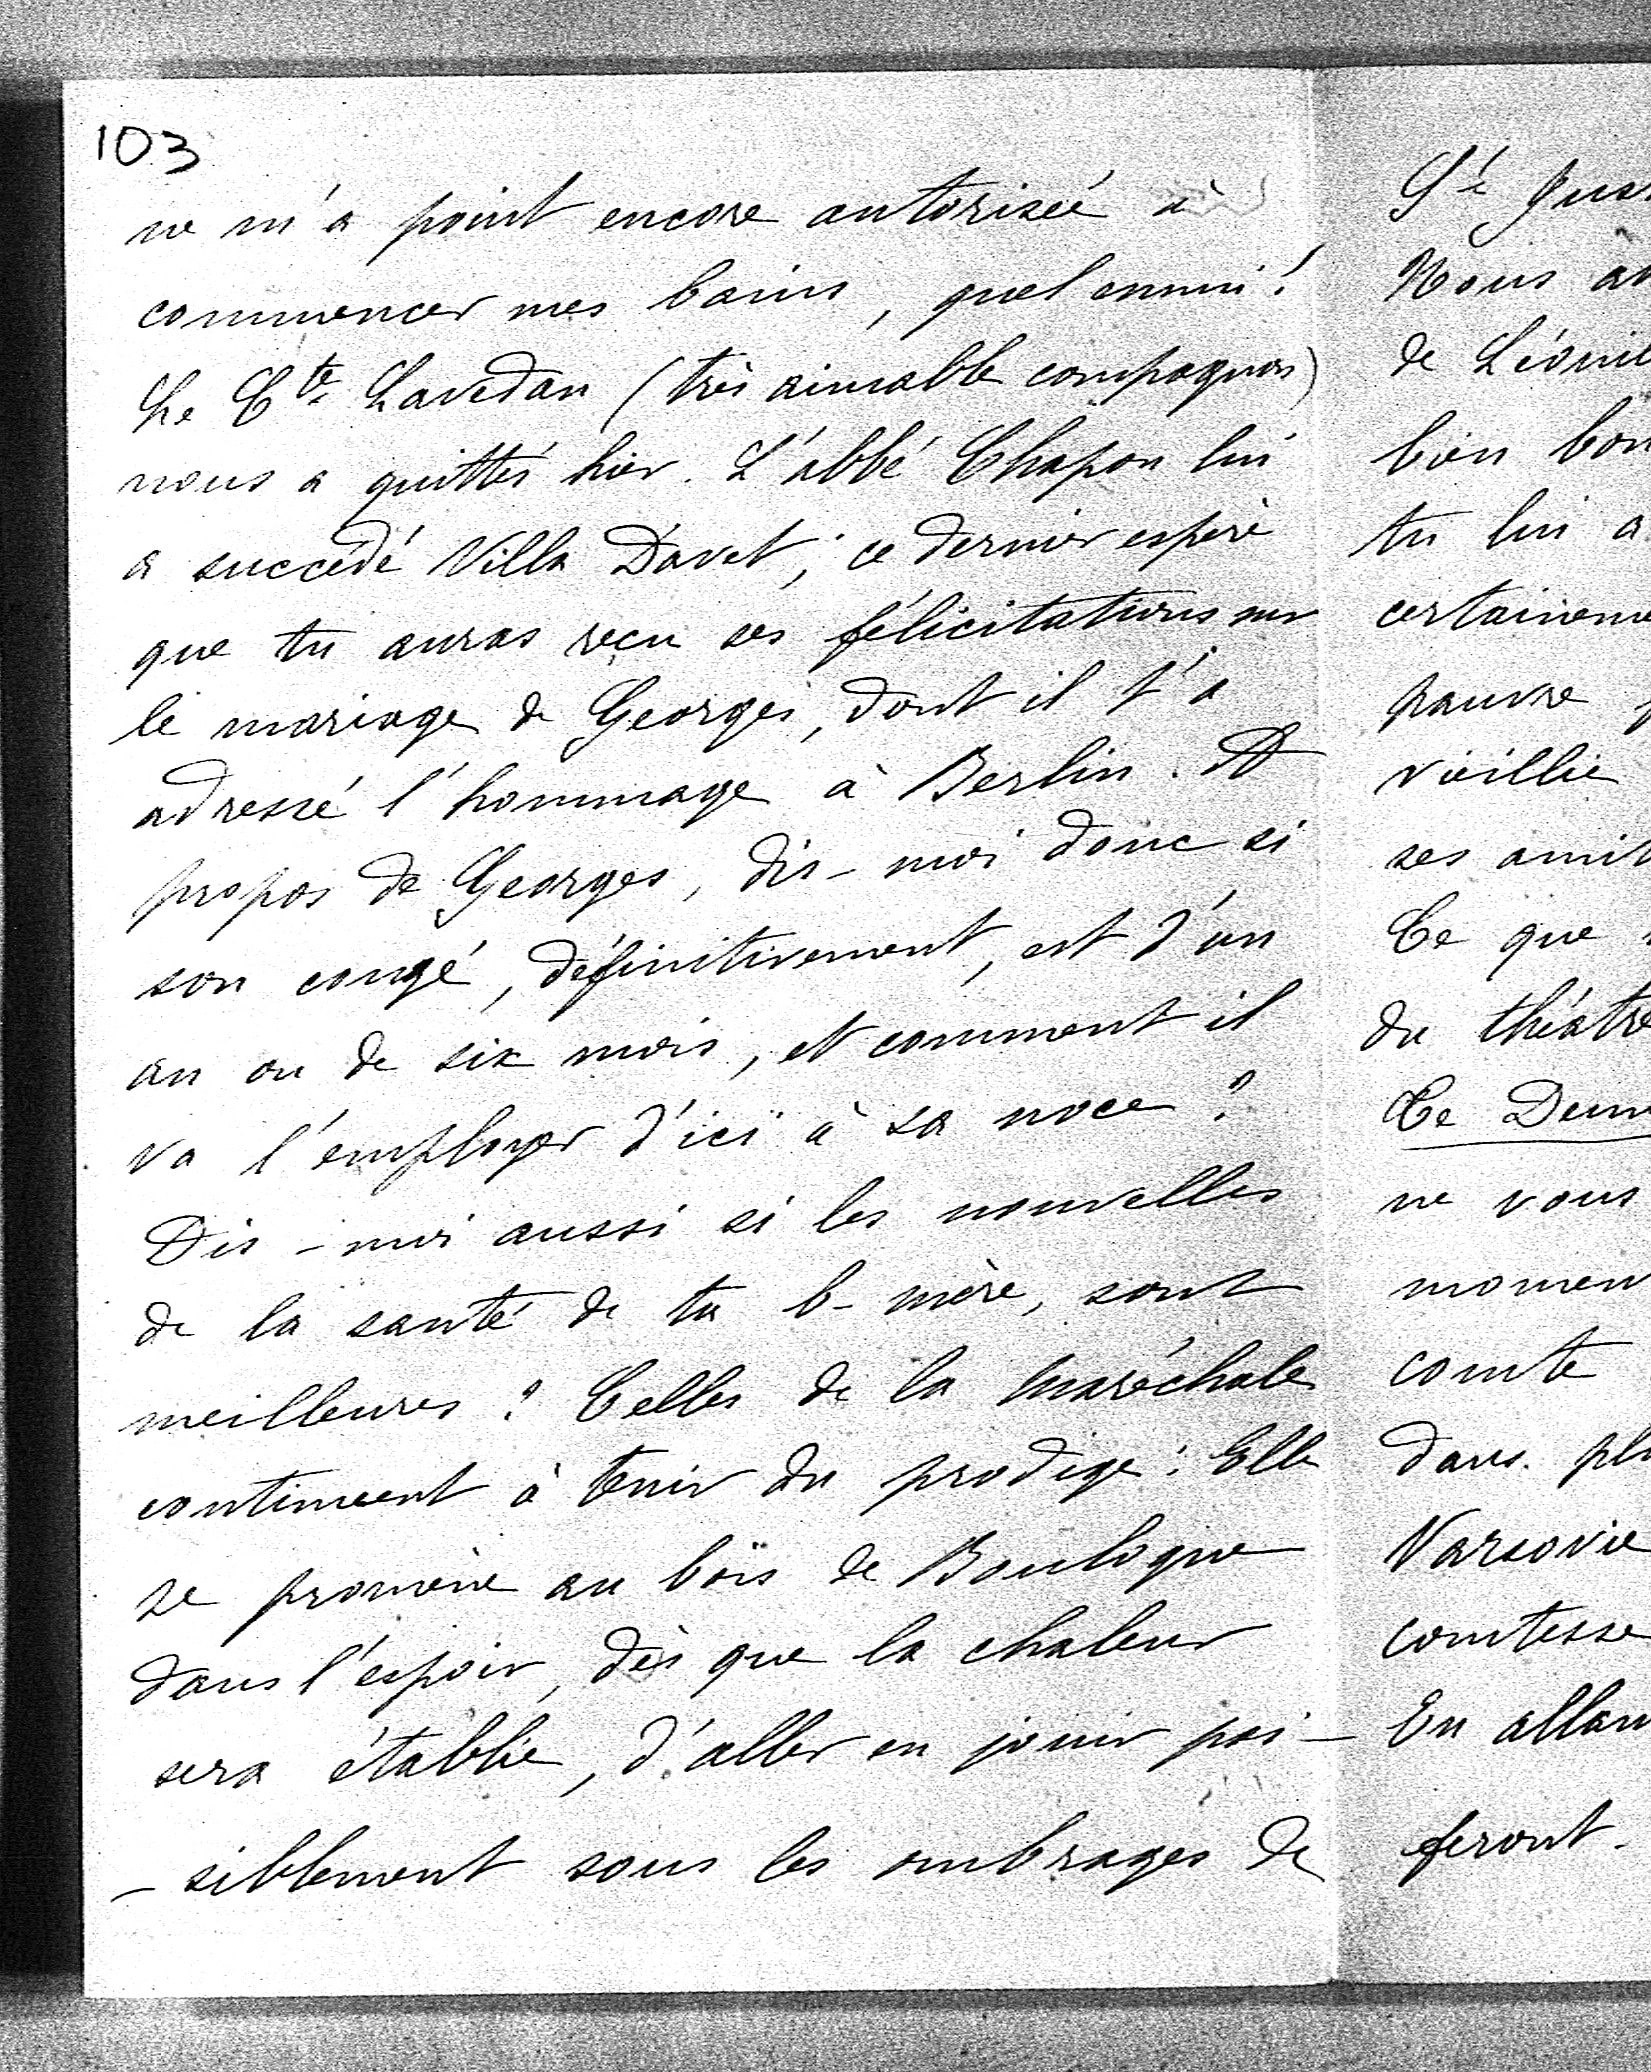 103
ne m'a point encore autorisée à
commencer mes bains, quel ennui!
Le Cte Lavedan (très aimable compagnon)
nous a quittés hier. L'abbé Chapon lui
a succédé Villa Davet; ce dernier espère
que tu auras reçu ses félicitations sur
le mariage de Georges, dont il t'a
adressé l'hommage à Berlin. A
propos de Georges, dis-moi donc si
son congé, définitivement, est d'un
an ou de six mois, et comment il
va l'employer d'ici à sa noce?
Dis-moi aussi si les nouvelles
de la santé de ta b-mère, sont
meilleures? Celles de la maréchale
continuent à tenir du prodige: Elle
se promène au bois de Boulogne
dans l'espoir, dès que la chaleur
sera établie, d'aller en jouir pai-
-siblement sous les ombrages de
Nous
de
bien
tu lui a
pauvre
vieillie
ses
Ce que
du théâtre
Ce
ne vous
comte
dans
Varsovie
comtesse
En
feront.